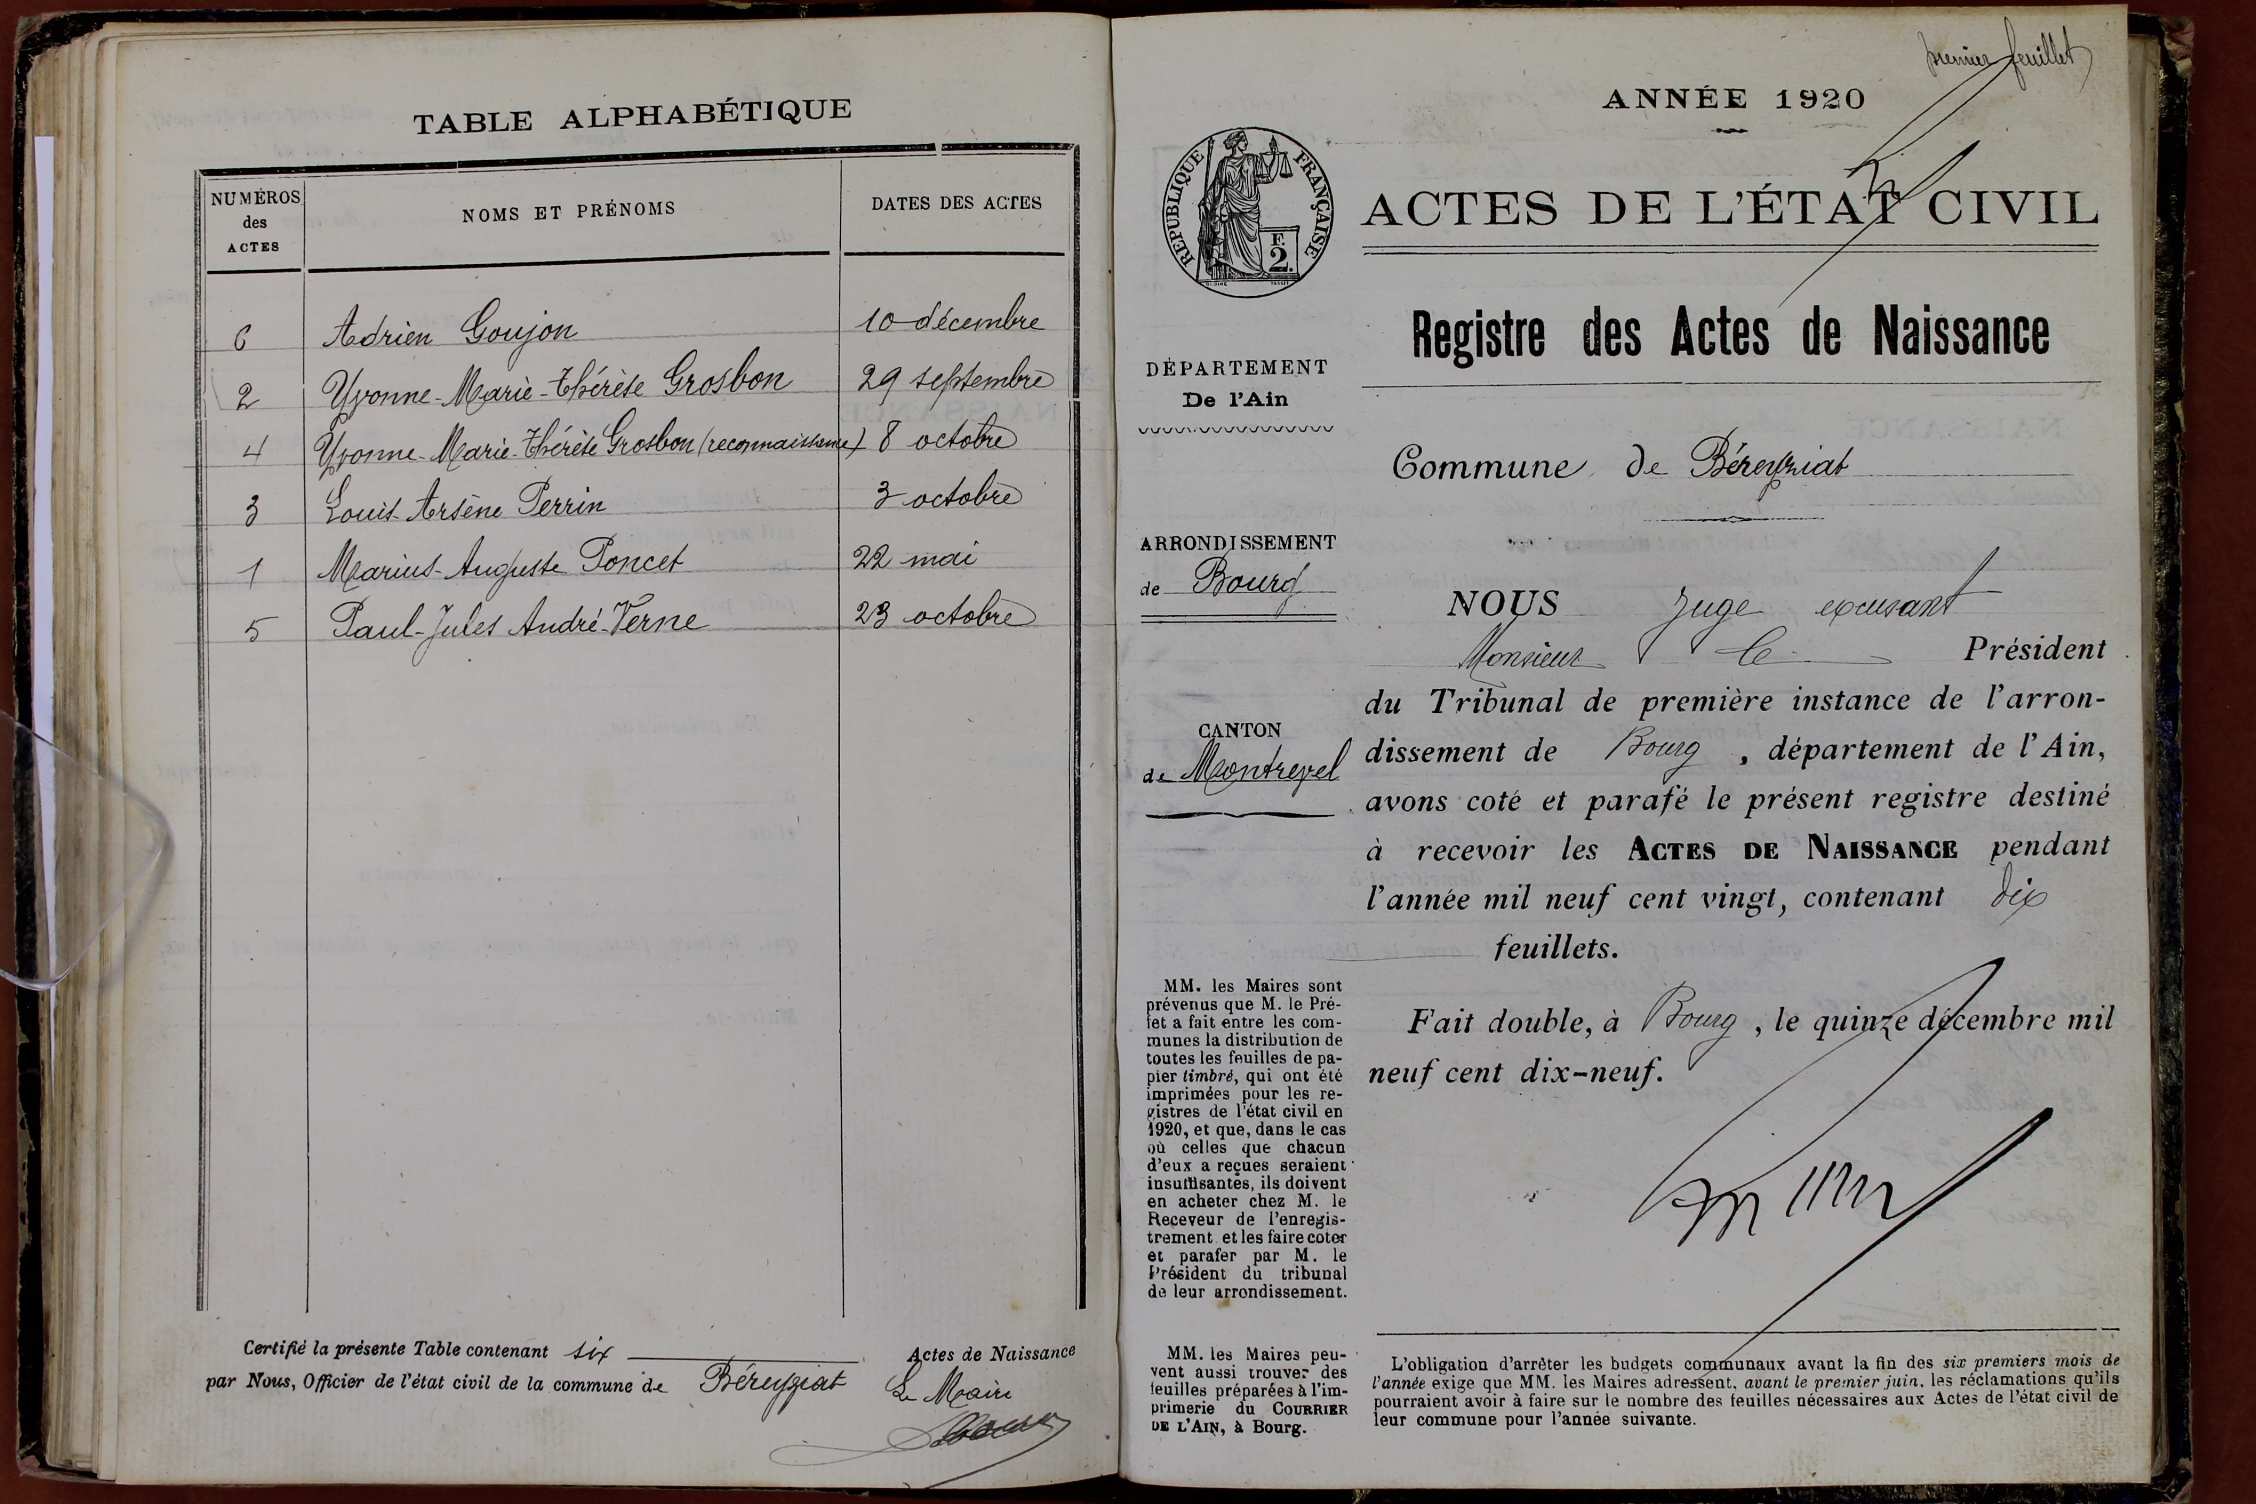 TABLE ALPHABÉTIQUE
NUMÉROS des ACTES
NOMS ET PRÉNOMS
DATES DES ACTES
6 Adrien Goujon 10 décembre
2 Yvonne-Marie-Thérèse Grosbon 29 septembre
4 Yvonne-Marie-Thérèse Grosbon (reconnaissance) 8 octobre
3 Louis-Arsène Perrin 3 octobre
1 Marius-Auguste Poncet 22 mai
5 Paul-Jules André-Verne 23 octobre
Certifié la présente Table contenant six Actes de Naissance
par Nous, Officier de l'état civil de la commune de Béreyziat
Le Maire
premier feuillet
ANNÉE 1920
RÉPUBLIQUE FRANÇAISE
F.
2.
ACTES DE L'ÉTAT CIVIL
Registre des Actes de Naissance
DÉPARTEMENT
De l'Ain
Commune de Béreyziat
ARRONDISSEMENT
de Bourg
CANTON
de Montrevel
NOUS Juge excusant
Monsieur le Président
du Tribunal de première instance de l'arron-
dissement de Bourg, département de l'Ain,
avons coté et parafé le présent registre destiné
à recevoir les ACTES DE NAISSANCE pendant
l'année mil neuf cent vingt, contenant dix
feuillets.
Fait double, à Bourg, le quinze décembre mil
neuf cent dix-neuf.
MM. les Maires sont
prévenus que M. le Pré-
fet a fait entre les com-
munes la distribution de
toutes les feuilles de pa-
pier timbré, qui ont été
imprimées pour les re-
gistres de l'état civil en
1920, et que, dans le cas
où celles que chacun
d'eux a reçues seraient
insuffisantes, ils doivent
en acheter chez M. le
Receveur de l'enregis-
trement et les faire coter
et parafer par M. le
Président du tribunal
de leur arrondissement.
MM. les Maires peu-
vent aussi trouver des
feuilles préparées à l'im-
primerie du COURRIER
DE L'AIN, à Bourg.
L'obligation d'arrêter les budgets communaux avant la fin des six premiers mois de
l'année exige que MM. les Maires adressent, avant le premier juin, les réclamations qu'ils
pourraient avoir à faire sur le nombre des feuilles nécessaires aux Actes de l'état civil de
leur commune pour l'année suivante.